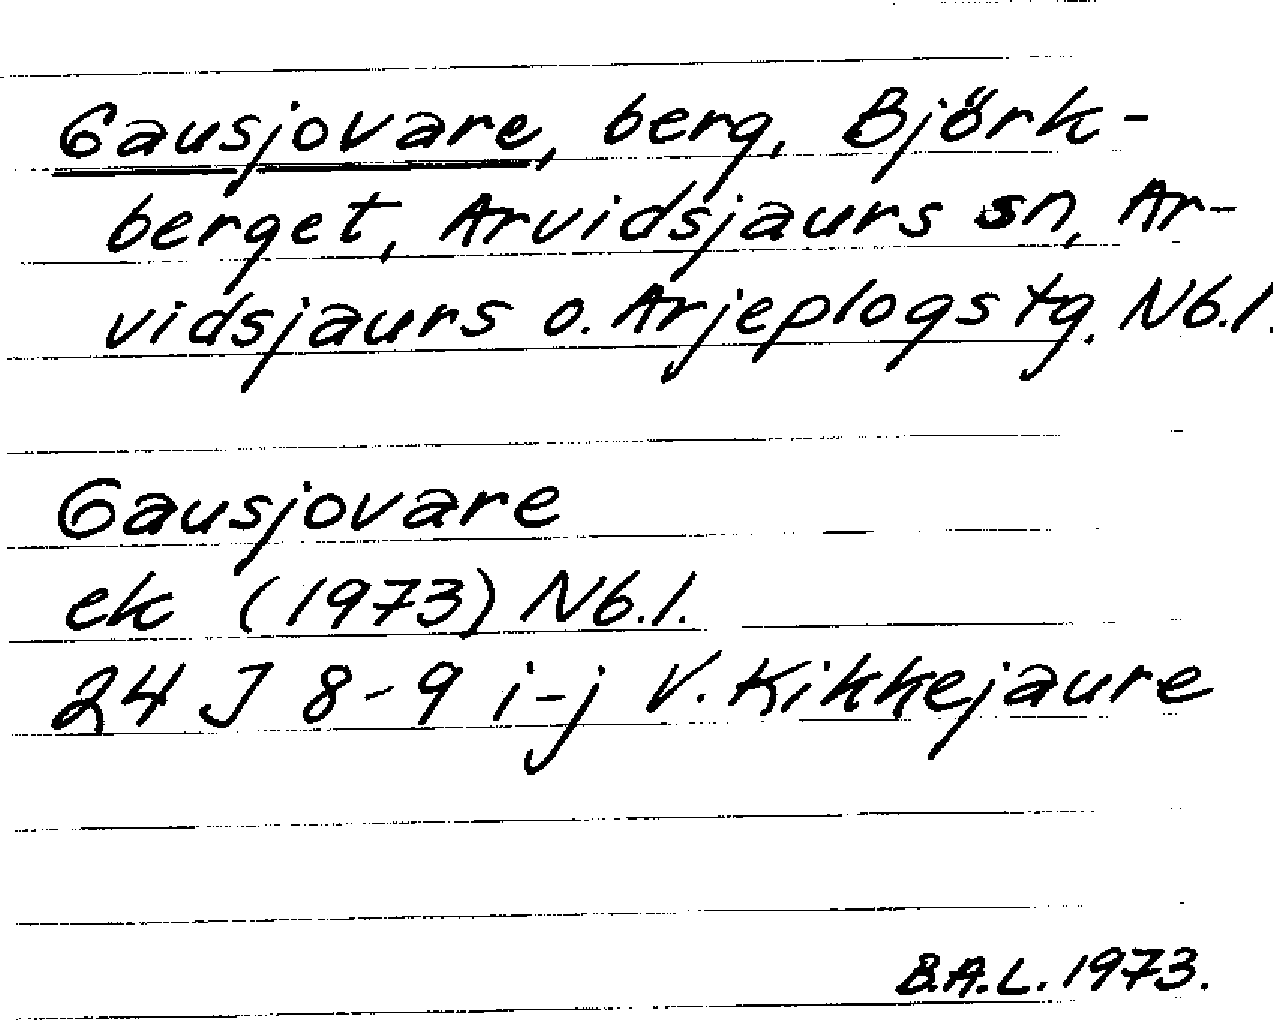 Gausjovare, berg, Björk-
berget, Arvidsjaurs sn, Ar-
vidsjaurs o. Arjeplogs tg. Nb.l.
Gausjovare
ek (1973) Nb.l.
24 J 8-9 i-j V. Kikkejaure
B.A.L. 1973.